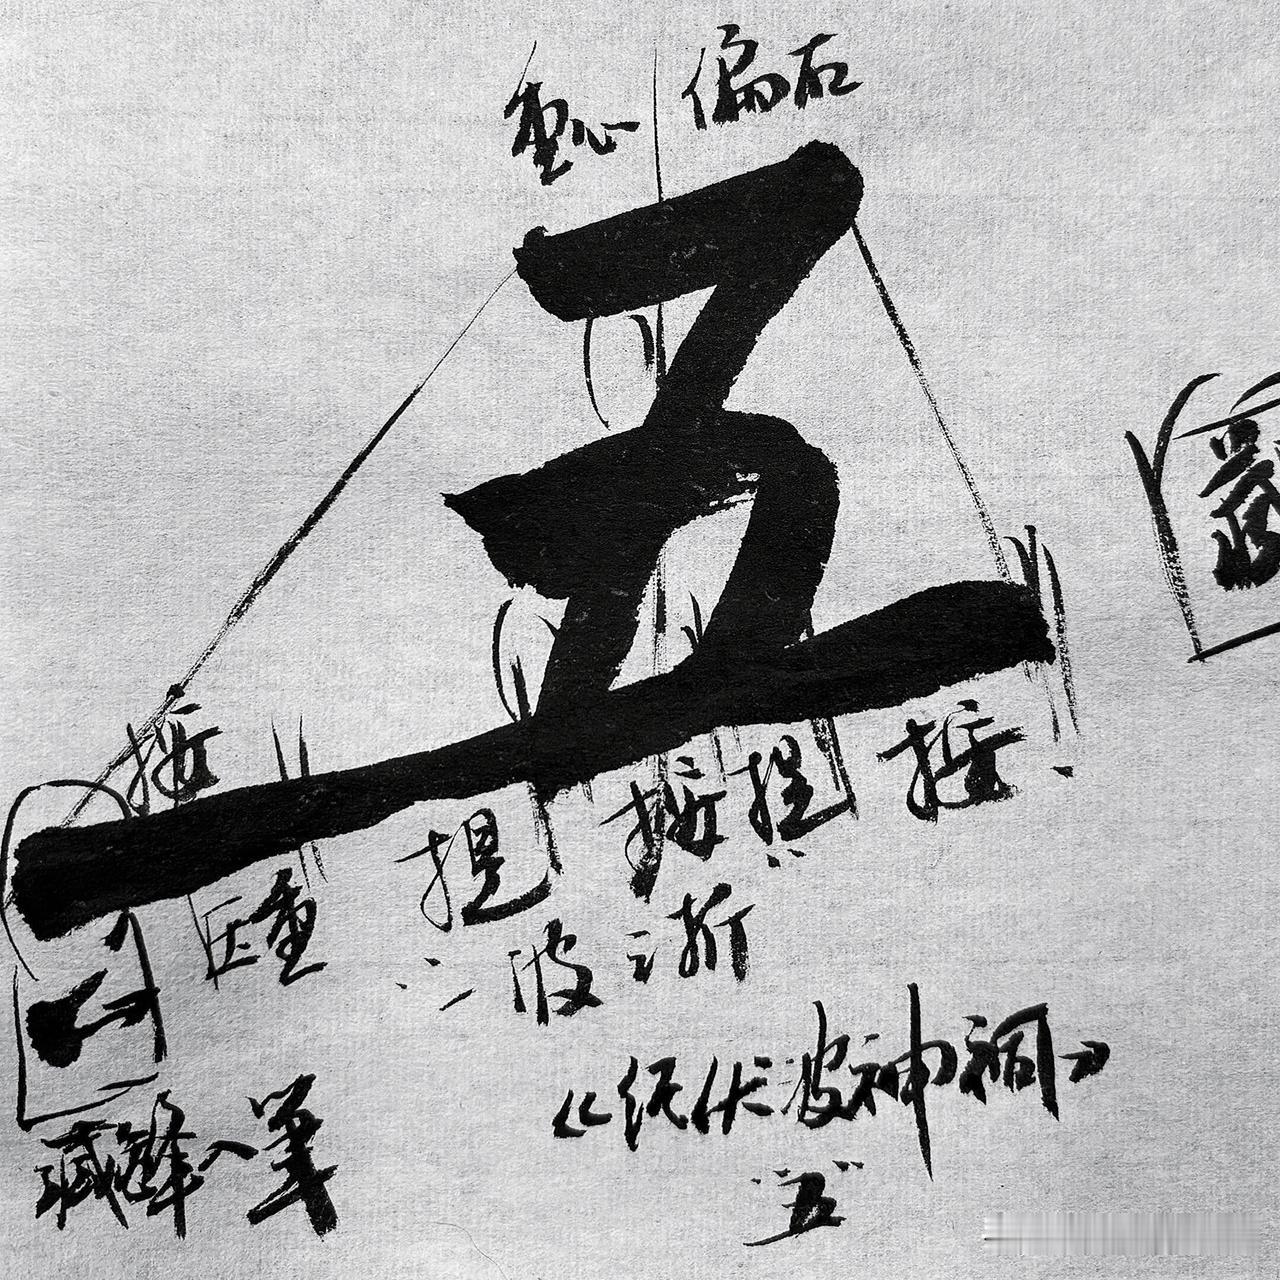 重心 偏右
五
按
提 按 提 按
压重
三波三折
藏锋入笔
《经伏波神祠》
"五"